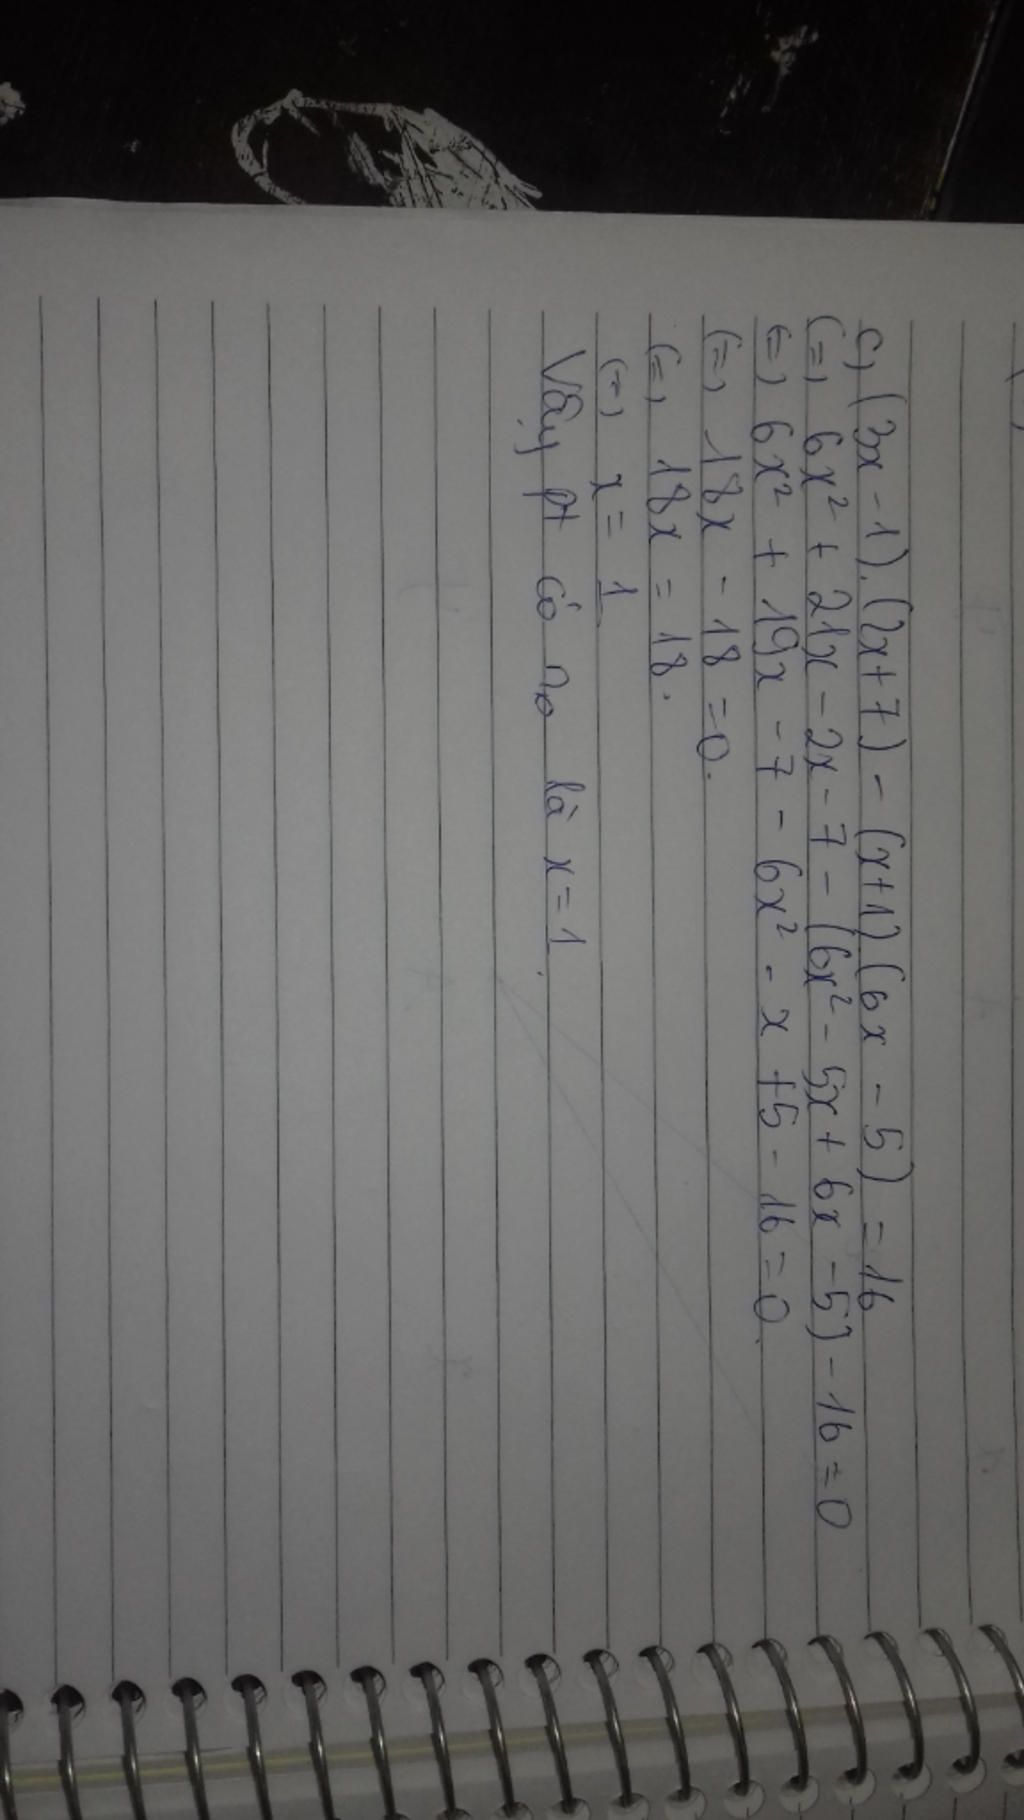 c, (3x - 1).(2x+7) - (x+1)(6x - 5) = 16
(=, 6x² + 21x - 2x - 7 - (6x² - 5x + 6x - 5) - 16 = 0
(=, 6x² + 19x - 7 - 6x² - x + 5 - 16 = 0.
(=, 18x - 18 = 0.
(=, 18x = 18.
(=, x = 1
Vậy pt có no là x = 1.